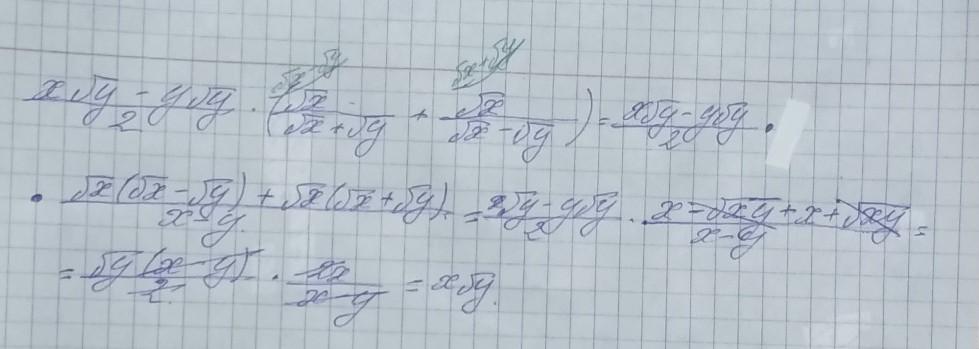 (x√y - y√y)/2 · (√x/(√x + √y) + √x/(√x - √y)) = (x√y - y√y)/2 ·
· (√x(√x - √y) + √x(√x + √y))/(x - y) = (x√y - y√y)/2 · (x - √xy + x + √xy)/(x - y) =
= √y(x - y)/2 · 2x/(x - y) = x√y.